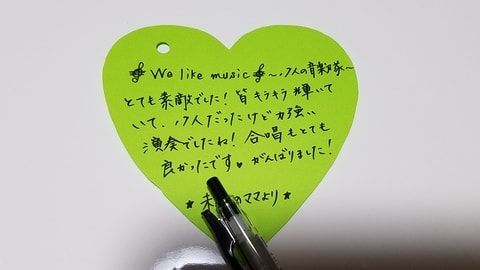 We like music ～17人の音楽隊～
とても素敵でした！皆キラキラ輝いて
いて、17人だったけど力強い
演奏でしたね！合唱もとても
良かったです♥がんばりました！
★未 のママより★